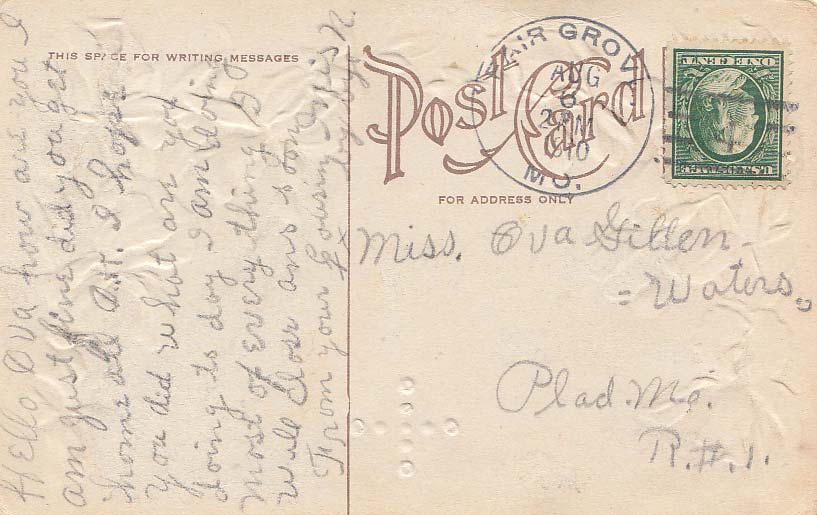 THIS SPACE FOR WRITING MESSAGES
Post Card
FOR ADDRESS ONLY
FAIR GROVE
AUG
6
PM
1910
MO.
ONE CENT
U.S. POSTAGE
Hello Ova how are you I
am just fine did you get
home all O.K. I hope
you did what are you
doing to day I am doing
most of every thing I
will close ans soon
From your cousin
by by
Miss. Ova Gillen-
=Waters.
Plad. Mo.
R.#.1.